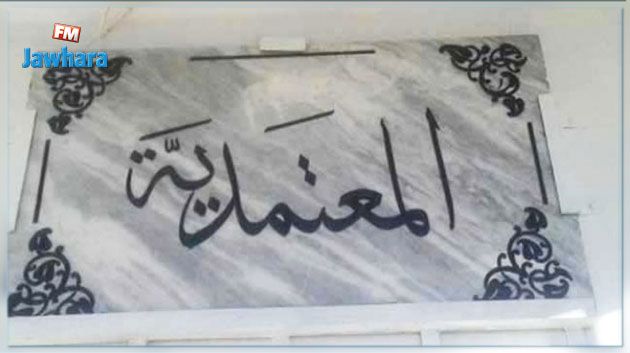 FM
Jawhara
المعتمَديَّة